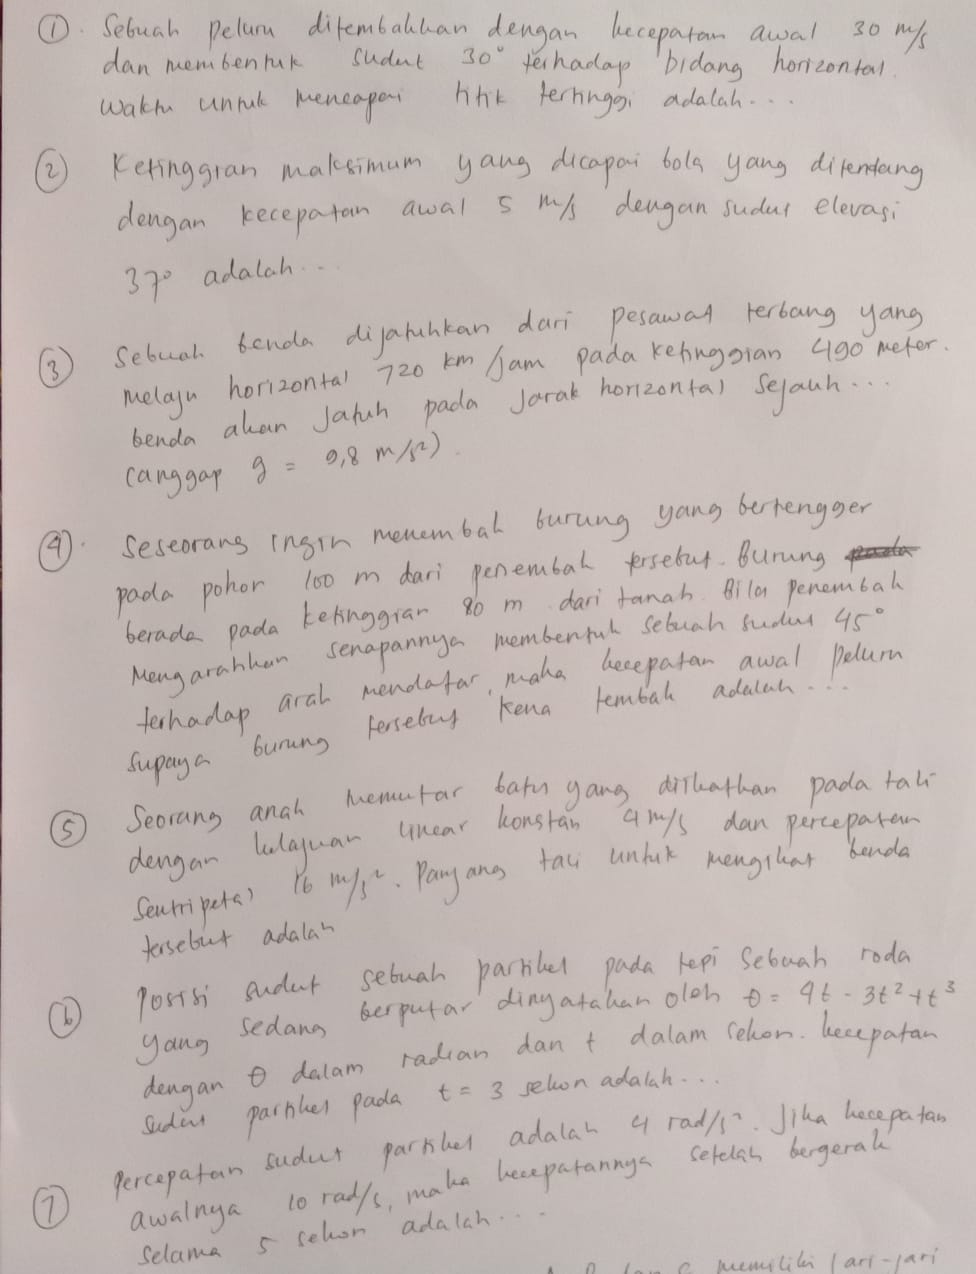 ①. Sebuah peluru ditembakkan dengan kecepatan awal 30 m/s
dan membentuk sudut 30° terhadap bidang horizontal.
waktu untuk mencapai titik tertinggi adalah...
② Ketinggian maksimum yang dicapai bola yang ditendang
dengan kecepatan awal 5 m/s dengan sudut elevasi
37° adalah...
③ Sebuah benda dijatuhkan dari pesawat terbang yang
melaju horizontal 720 km/jam pada ketinggian 490 meter.
benda akan jatuh pada jarak horizontal sejauh...
(anggap g = 9,8 m/s²).
④. Seseorang ingin menembak burung yang bertengger
pada pohon 100 m dari penembak tersebut. Burung
berada pada ketinggian 80 m dari tanah. Bila penembak
Mengarahkan senapannya membentuk sebuah sudut 45°
terhadap arah mendatar, maka kecepatan awal peluru
supaya burung tersebut kena tembak adalah...
⑤ Seorang anak memutar batu yang diikatkan pada tali
dengan kelajuan linear konstan 4 m/s dan percepatan
sentripetal 16 m/s². Panjang tali untuk mengikat benda
tersebut adalah
⑥ Posisi sudut sebuah partikel pada tepi sebuah roda
yang sedang berputar dinyatakan oleh θ = 4t - 3t² + t³
dengan θ dalam radian dan t dalam sekon. kecepatan
sudut partikel pada t = 3 sekon adalah...
⑦ Percepatan sudut partikel adalah 4 rad/s². Jika kecepatan
awalnya 10 rad/s, maka kecepatannya setelah bergerak
selama 5 sekon adalah...
memiliki jari-jari